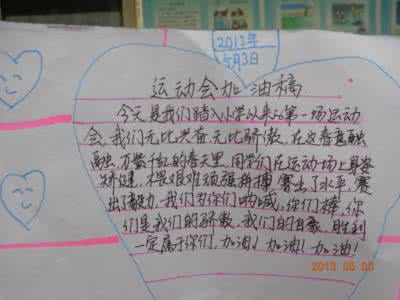 2013年
5月3日
运动会加油稿
今天是我们踏入小学以来的第一场运动
会,我们无比兴奋无比骄傲,在这春意融
融,万紫千红的春天里,同学们在运动场上身姿
矫健,不畏艰难顽强拼搏,赛出了水平,赛
出了毅力,我们为你们呐喊,你们棒,你
们是我们的骄傲,我们的自豪,胜利
一定属于你们,加油!加油!加油!
2013 05 03